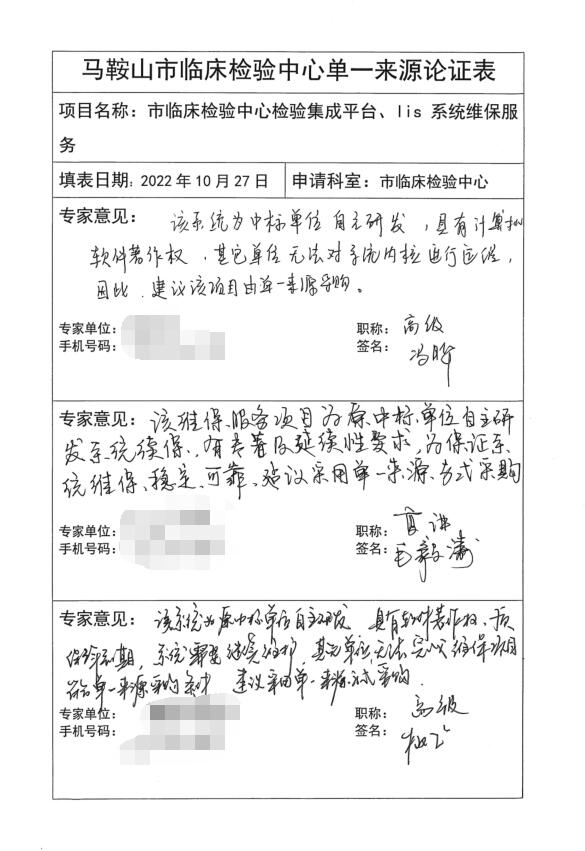 马鞍山市临床检验中心单一来源论证表
项目名称：市临床检验中心检验集成平台、lis 系统维保服
务
填表日期：2022 年 10 月 27 日 申请科室：市临床检验中心
专家意见：该系统为中标单位自主研发，具有计算机
软件著作权，其它单位无法对系统内核进行运维，
因此，建议该项目由单一来源采购。
专家单位： 职称：高级
手机号码： 签名：冯
专家意见：该维保服务项目为原中标单位自主研
发系统续保，有共著及延续性要求，为保证系
统维保、稳定、可靠、建议采用单一来源方式采购
专家单位： 职称：高
手机号码： 签名：毛毅涛
专家意见：该系统为原中标单位自主研发，具有软件著作权，质
保到期，系统需要继续维护，其它单位无法完成维保项目
符合单一来源采购条件，建议采用单一来源方式采购。
专家单位： 职称：高级
手机号码： 签名：